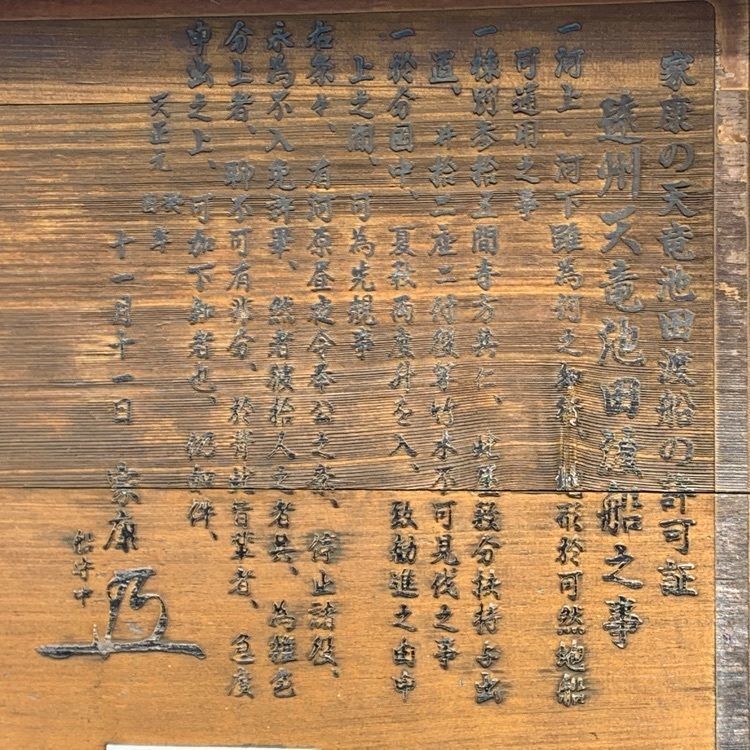 家康の天竜池田渡船の許可証
遠州天竜池田渡船之事
一河上・河下雖為何之知行、地形於可然地船
可通用之事
一棟別参拾五間寺方共仁、屋敷分扶持与出
置、并拾二座二付 等竹木不可見伐之事
一於分国中、夏秋両度升を入、致勧進之由申
上之間、可為先規事
右条々、有河原昼夜令奉公之条、停止諸役、
永為不入免許畢、然者彼拾人之者共、為雑色
分上者、聊不可有非分、於背此旨輩者、急度
申出之上、可加下知者也、仍如件、
天正元 癸酉年
十一月十一日 家康
船守中